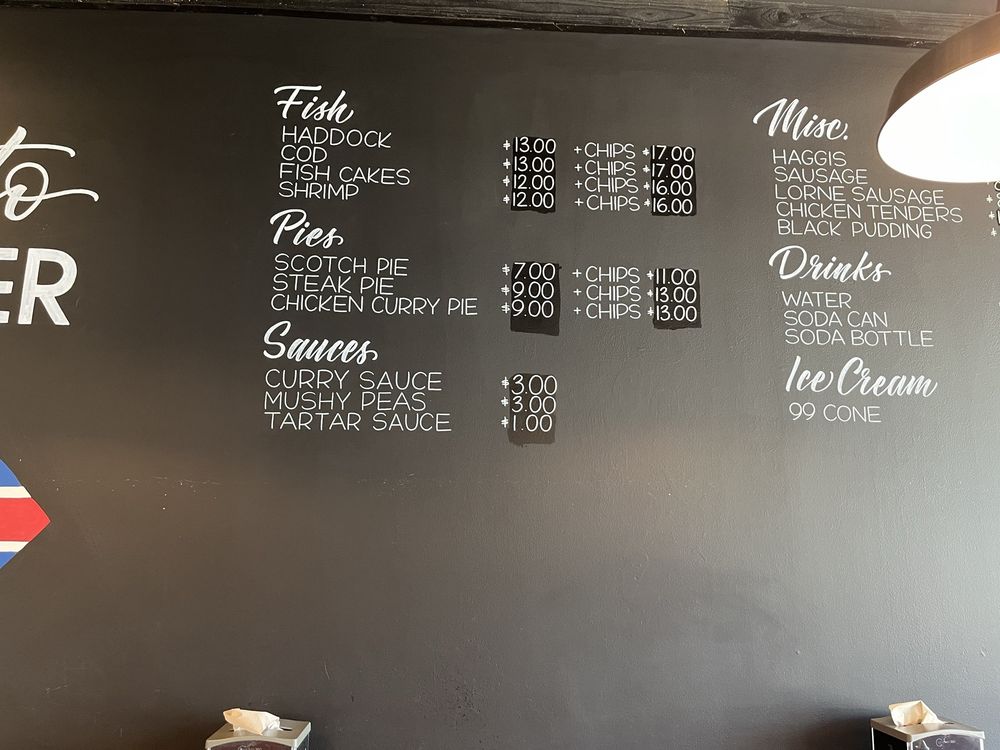 to
ER
Fish
HADDOCK $13.00 +CHIPS $17.00
COD $13.00 +CHIPS $17.00
FISH CAKES $12.00 +CHIPS $16.00
SHRIMP $12.00 +CHIPS $16.00
Pies
SCOTCH PIE $7.00 +CHIPS $11.00
STEAK PIE $9.00 +CHIPS $13.00
CHICKEN CURRY PIE $9.00 +CHIPS $13.00
Sauces
CURRY SAUCE $3.00
MUSHY PEAS $3.00
TARTAR SAUCE $1.00
Misc.
HAGGIS
SAUSAGE
LORNE SAUSAGE
CHICKEN TENDERS
BLACK PUDDING
Drinks
WATER
SODA CAN
SODA BOTTLE
Ice Cream
99 CONE